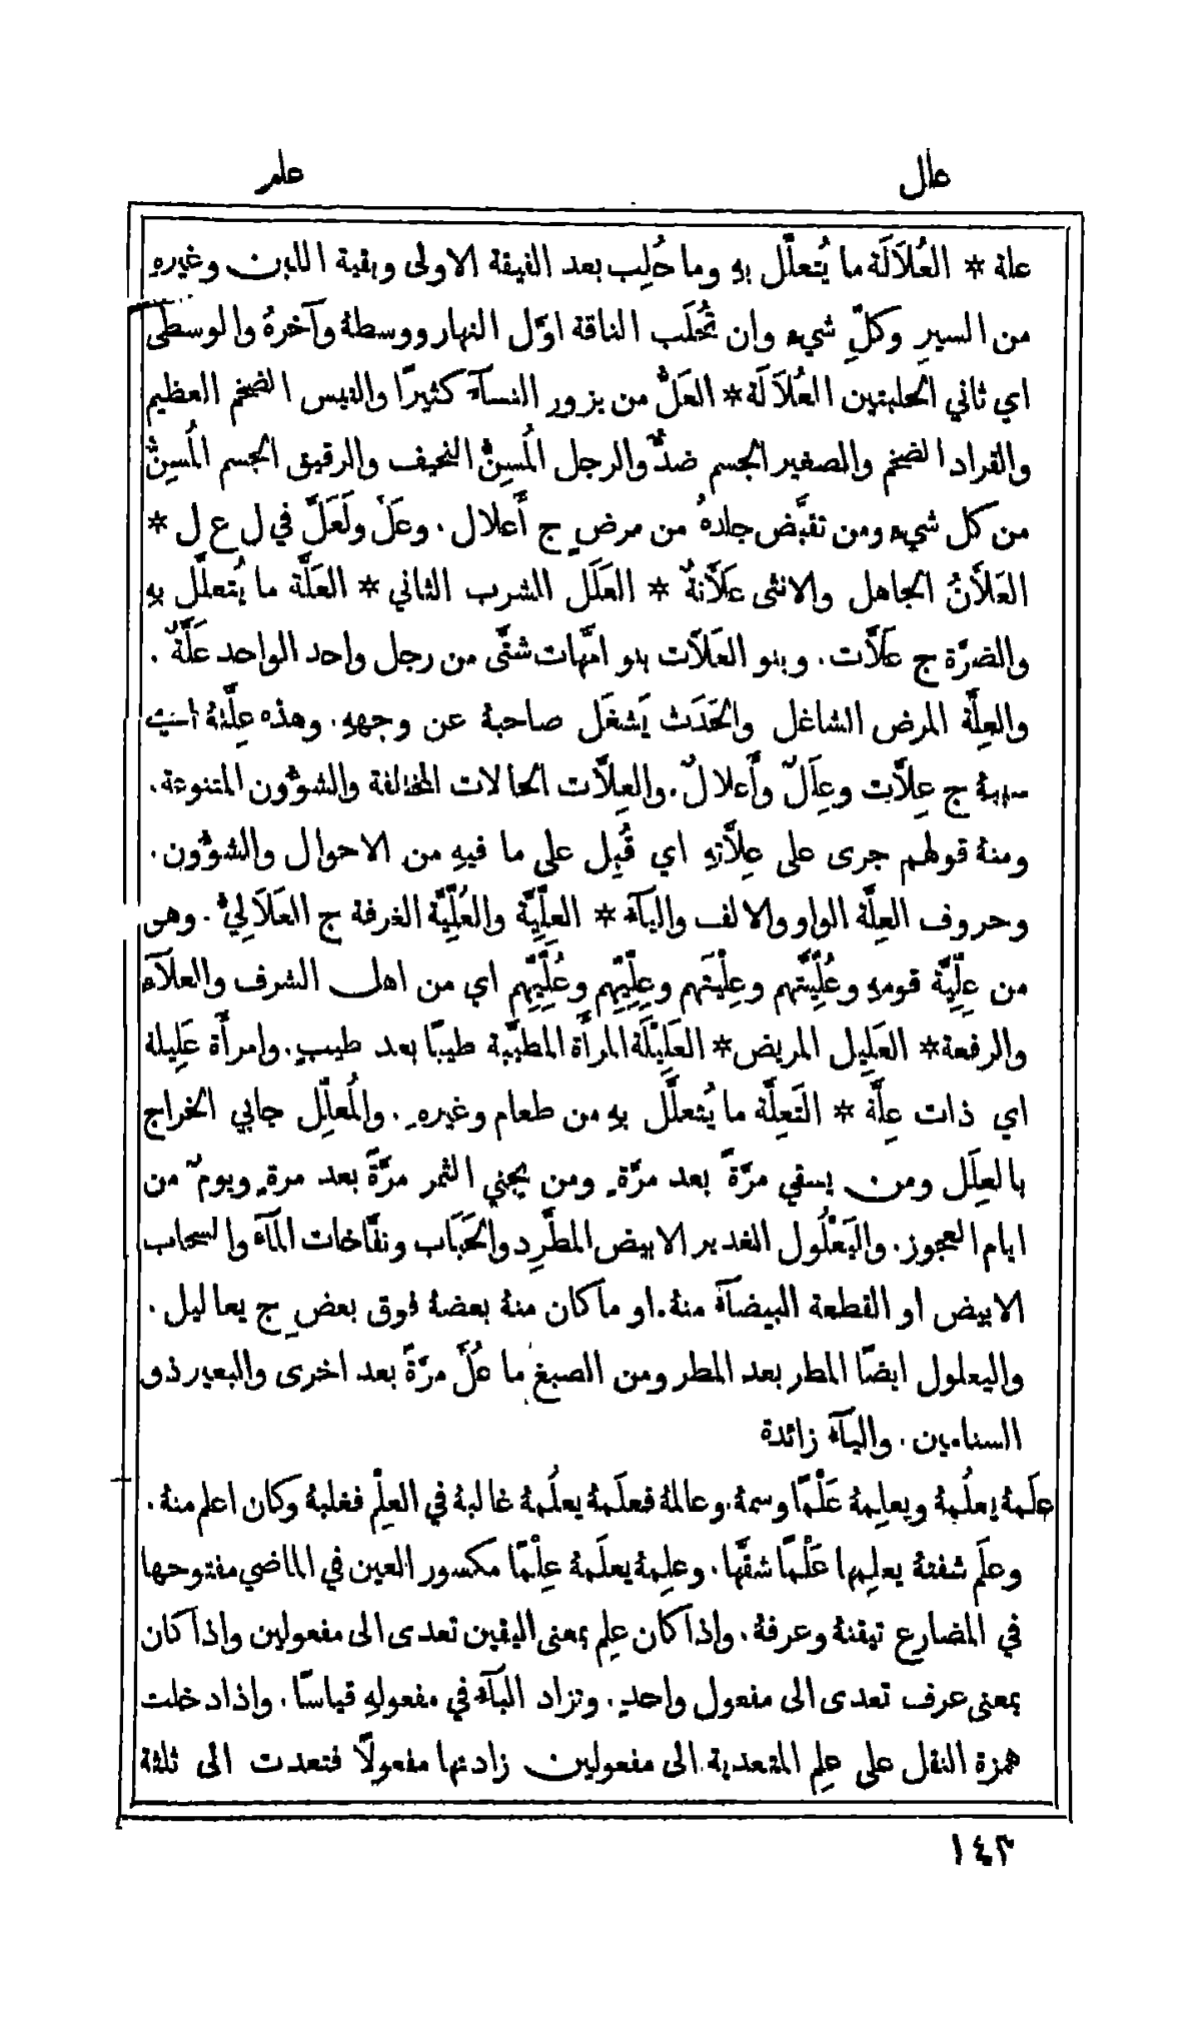 علل
علم
علة * العُلاَلَة ما يُتعلَّل بهِ وما حُلِب بعد الفيقة الاولى وبقية اللبن وغيرهِ
من السيرِ وكلِّ شيءٍ وان تُحلَب الناقة اوَّل النهار ووسطهُ وآخرهُ والوسطى
اي ثاني الحلبتين العُلاَلَة * العَلُّ من يزور النسآءَ كثيرًا والتيس الضخم العظيم
والقراد الضخم والصغير الجسم ضدٌّ والرجل المُسِنُّ النحيف والرقيق الجسم المُسِنُّ
من كل شيءٍ ومن تقبَّض جلدهُ من مرضٍ ج أَعلال . وعَلَّ ولَعَلَّ في ل ع ل *
العَلاَّنُ الجاهل والانثى عَلاَّنةٌ * العَلَل الشرب الثاني * العَلَّة ما يُتعلَّل بهِ
والضرَّة ج عَلاَّت . وبنو العَلاَّت بنو امَّهات شتَّى من رجل واحد الواحد عَلَّةٌ .
والعِلَّة المرض الشاغل والحَدَث يَشغَل صاحبهُ عن وجههِ . وهذه عِلَّتهُ اي
سببهُ ج عِلاَّت وعِلَلٌ وأَعلالٌ . والعِلاَّت الحالات المختلفة والشوُون المتنوعة .
ومنهُ قولهم جرى على عِلاَّتهِ اي قُبِل على ما فيهِ من الاحوال والشوُون .
وحروف العِلَّة الواو والالف واليآءُ * العِلِّيَّة والعُلِّيَّة الغرفة ج العَلاَلِيُّ . وهو
من عِلِّيَّة قومهِ وعُلِّيَّتهم وعِلْيَتهم وعِلِّيِّهم وعُلِّيِّهم اي من اهل الشرف والعلآءِ
والرفعة * العَلِيل المريض * العَلِيْلَة المرأَة المطيَّبة طيبًا بعد طيبٍ . وامرأَة عَلِيلة
اي ذات عِلَّة * التَعِلَّة ما يُتعلَّل بهِ من طعام وغيرهِ . والمُعلِّل جابي الخراج
بالعِلَل ومن يسقي مرَّةً بعد مرَّةٍ ومن يجني الثمر مرَّةً بعد مرةٍ ويومٌ من
ايام العجوز . واليَعْلُول الغدير الابيض المطَّرِد والحَبَاب ونفَّاخات المآءِ والسحاب
الابيض او القطعة البيضآءُ منهُ . او ما كان منهُ بعضهُ فوق بعضٍ ج يعاليل .
واليعلول ايضًا المطر بعد المطر ومن الصبغ ما عُلَّ مرَّةً بعد اخرى والبعير ذو
السنامين . واليآءُ زائدة
علَمهُ يعلُمهُ ويعلِمهُ عَلْمًا وسمهُ . وعالمهُ فعلَمهُ يعلُمهُ غالبهُ في العلِمْ فغلبهُ وكان اعلم منهُ .
وعلَم شفتهُ يعلِمها عَلْمًا شقَّها . وعلِمهُ يعلَمهُ عِلْمًا مكسور العين في الماضي مفتوحها
في المضارع تيقنهُ وعرفهُ . واذا كان علِم بمعنى اليقين تعدى الى مفعولين واذا كان
بمعنى عرف تعدى الى مفعول واحدٍ . وتزاد البآءُ في مفعولهِ قياسًا . واذا دخلت
همزة النقل على علِم المتعدية الى مفعولين زادتها مفعولًا فتعدت الى ثلثة
١٤٣